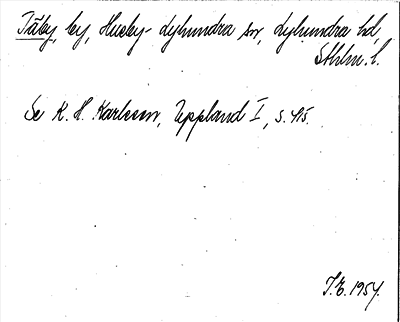 Täby, by, Husby-Lyhundra sn, Lyhundra hd,
Sthlm. l.
Se K. H. Karlsson, Uppland I, s. 415.
T.E. 1954.